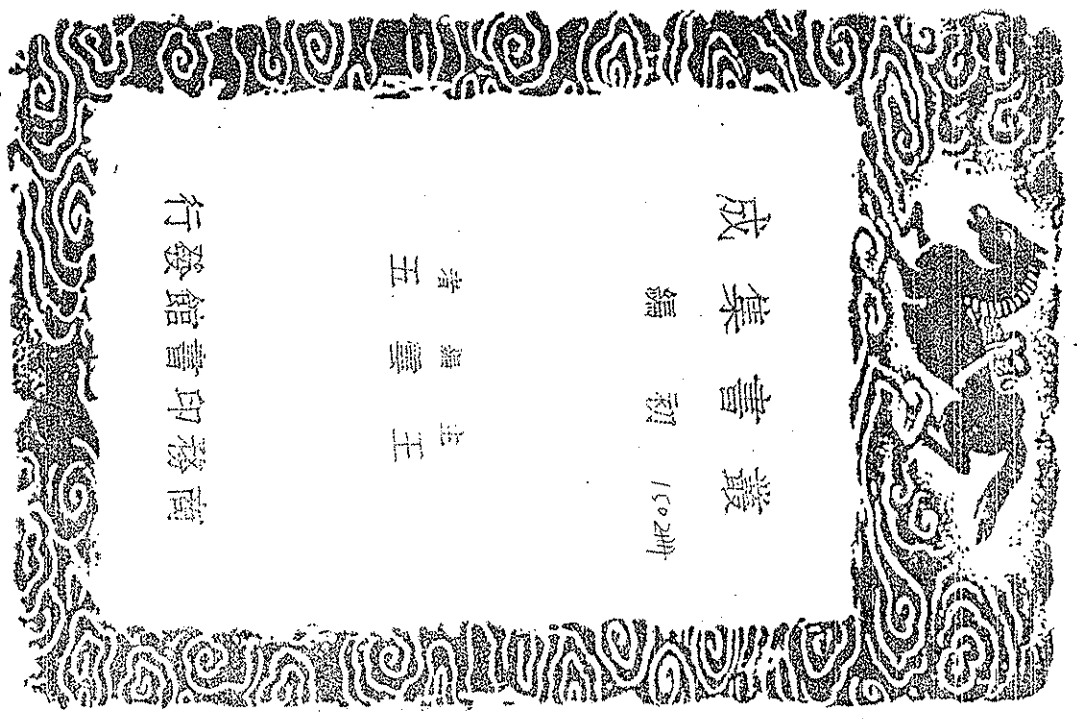 叢書集成
初編
1502冊
主編者
王雲五
商務印書館發行